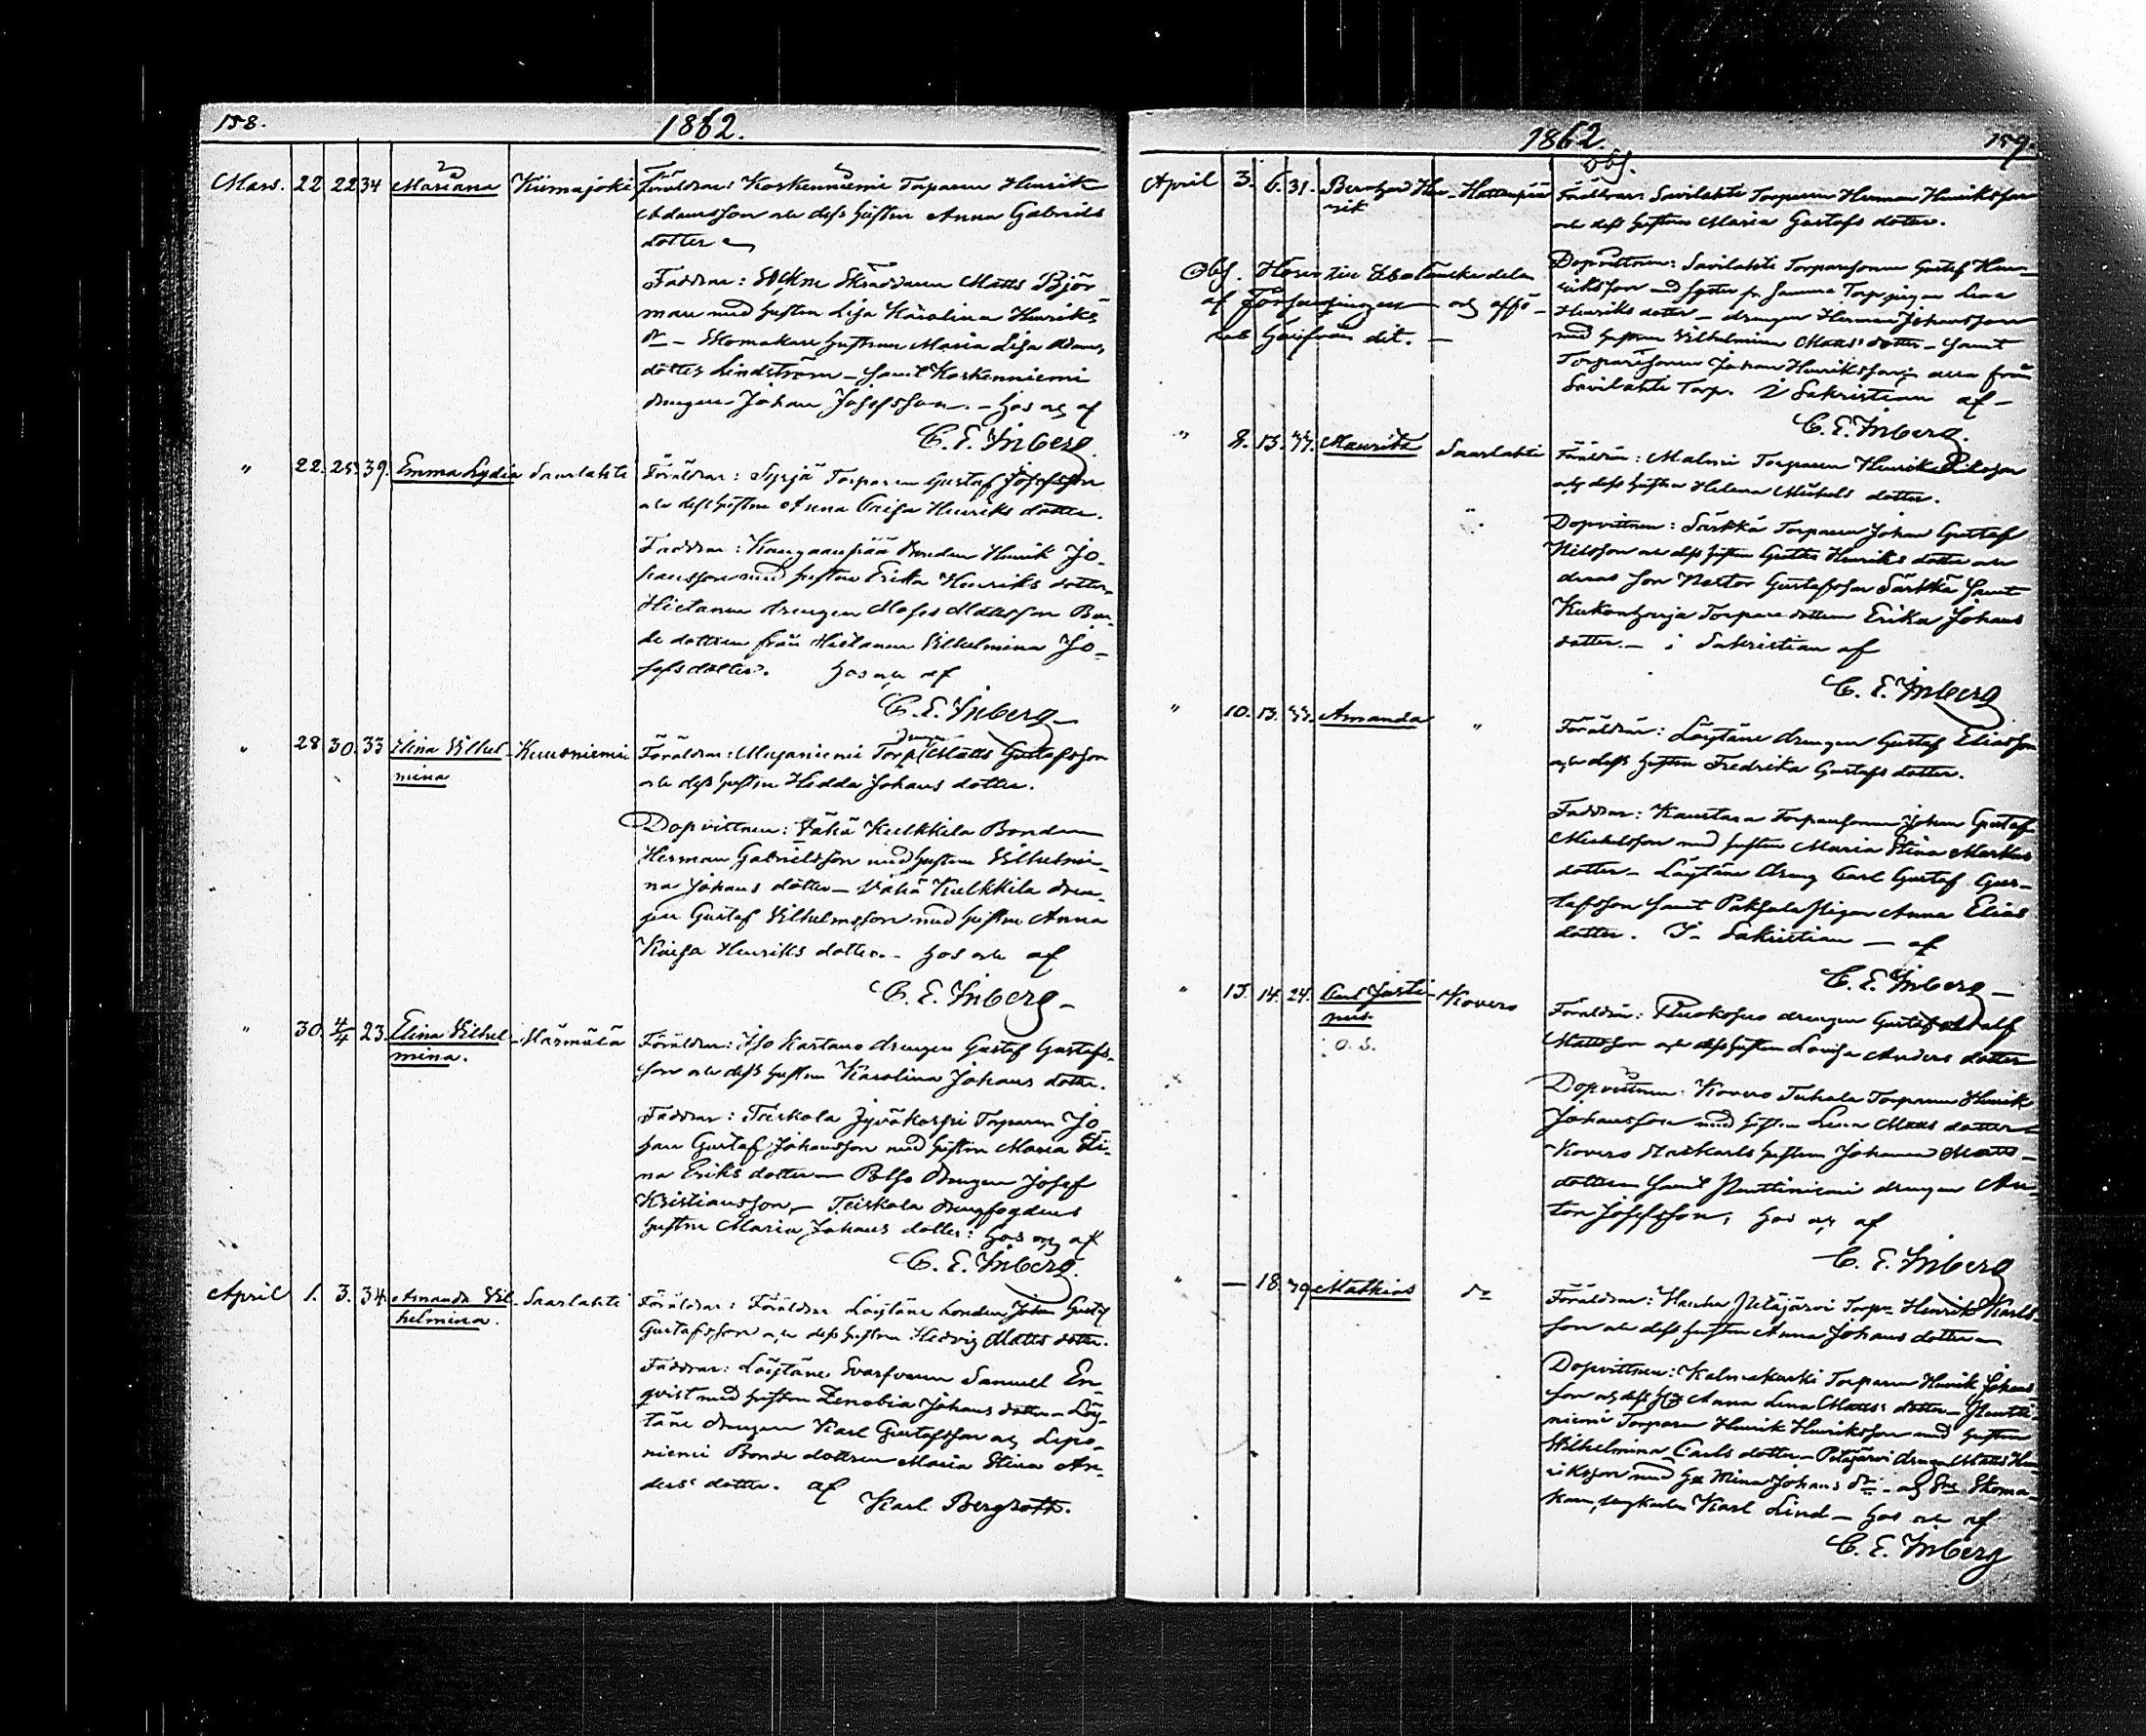 158.
1862.
Mars. 22 22 34 Mariana Kiimajoki Föräldrar: Koskenniemi Torparen Henrik
Adamsson och dess hustru Anna Gabriels
dotter
Faddrar: Sockne Skräddaren Matts Björ
man med hustru Lisa Karolina Henriks
dr – Skomakare hustrun Maria Lisa Adams
dotter Lindström – samt Koskenniemi
drengen Johan Josefsson. – hos oss af
C. E. Inberg.
" 22. 25. 39. Emma Lydia Saarlahti Föräldrar: Torparen Gustaf Josefsson
och dess hustru Anna Caisa Henriks dotter.
Faddrar: Kangaanpää Bonden Henrik Jo-
hansson med hustru Erika Henriks dotter,
Hietanen drengen Moses Mattsson Bon-
de dottren från Hietanen Vilhelmina Jo-
sefs dotter. hos oss af
C. E. Inberg
" 28 30. 33 Elina Vilhel- Kuusniemi Föräldrar: Torp drengen Matts Gustafsson
mina och dess hustru Hedda Johans dotter.
Dopvittnen: Vähä Kulkkila Bonden
Herman Gabrielsson med hustru Vilhelmi-
na Johans dotter – Vähä Kulkkila dren-
gen Gustaf Vilhelmsson med hustru Anna
Kaisa Henriks dotter. – hos oss af
C. E. Inberg –
" 30. 4/4 23. Elina Vilhel- Härmälä Föräldrar: Iso Kartano drengen Gustaf Gustafs-
mina. son och dess hustru Karolina Johans dotter.
Faddrar: Tiiskola Jyväkorpi Torparen Jo-
han Gustaf Johansson med hustru Maria Sti-
na Eriks dotter – Polso drengen Josef
Kristiansson, – Tiiskola drengfogdens
hustru Maria Johans dotter: hos oss af
C. E. Inberg.
April 1. 3. 34. Amanda Vil- Saarlahti Föräldrar: Föräldrar Löytäne bonden Johan Gustaf
helmina. Gustafsson och dess hustru Hedvig Matts dotter.
Faddrar: Löytäne Svarfvaren Samuel En-
qvist med hustru Zenobia Johans dotter – Löy-
täne drengen Karl Gustafsson och Lepo-
niemi Bonde dottren Maria Stina An-
ders dotter. af
Karl Bergroth.
1862.
159.
Obs.
April 3. 6. 31. Bernhard Hen- Föräldrar: Savilahti Torparen Herman Henriksson
rik och dess hustru Maria Gustafs dotter.
Obs. Hörer till
af församlingen och affö-
ras härifrån dit. –
Dopvittnen: Savilahti Torparesonen Gustaf Hen-
riksson med syster fr samma Torp pigan Lena
Henriks dotter – drengen Herman Johansson
med hustru Vilhelmina Matts dotter – samt
Torparesonen Johan Henriksson; alla från
Savilahti Torp. I Sakristian af –
C. E. Inberg.
" 8. 13. 44. Mauritz Saarlahti Föräldrar: Malmi Torparen Henrik Eriksson
och dess hustru Helena Michels dotter.
Dopvittnen: Särkkä Torparen Johan Gustaf
Nilsson och dess hustru Greta Henriks dotter och
deras son Nestor Gustafsson Särkkä samt
Kukonharja Torpare dottren Erika Johans
dotter. – i Sakristian af
C. E. Inberg
" 10. 13. 33. Amanda " Föräldrar: Löytäne drengen Gustaf Eliasson
och dess hustru Fredrika Gustafs dotter.
Faddrar: Kaustara Torparesonen Johan Gustaf
Michelsson med hustru Maria Stina Markus
dotter – Löytäne dreng Carl Gustaf Gus-
tafsson samt Pakkala pigan Anna Elias
dotter. I Sakristian – af
C. E. Inberg –
" 13. 14. 24. Carl Justi- Kovero Föräldrar: Ruokosuo drengen Gustaf Adolf
nus. Mattsson och dess hustru Lovisa Anders dotter
o. ä.
Dopvittnen: Kovero Torparen Henrik
Johansson med hustru Lena Matts dotter
Kovero hustrun Johanna Matts-
dotter samt Penttiniemi drengen An-
ton Josefsson, hos oss af
C. E. Inberg
" — 18. 39. Mathias do Föräldrar: Petäjärvi Torpn Henrik Karls-
son och dess hustru Anna Johans dotter
Dopvittnen: Torparen Henrik Johans-
son och dess h:u Anna Lena Matts dotter – Pentti-
niemi Torparen Henrik Henriksson med hustru
Wilhelmina Carls dotter – Petäjärvi drengen Matts Hen-
riksson med hu Mina Johans dr – och Skoma-
kare ungkarlen Karl Lind – hos oss af
C. E. Inberg